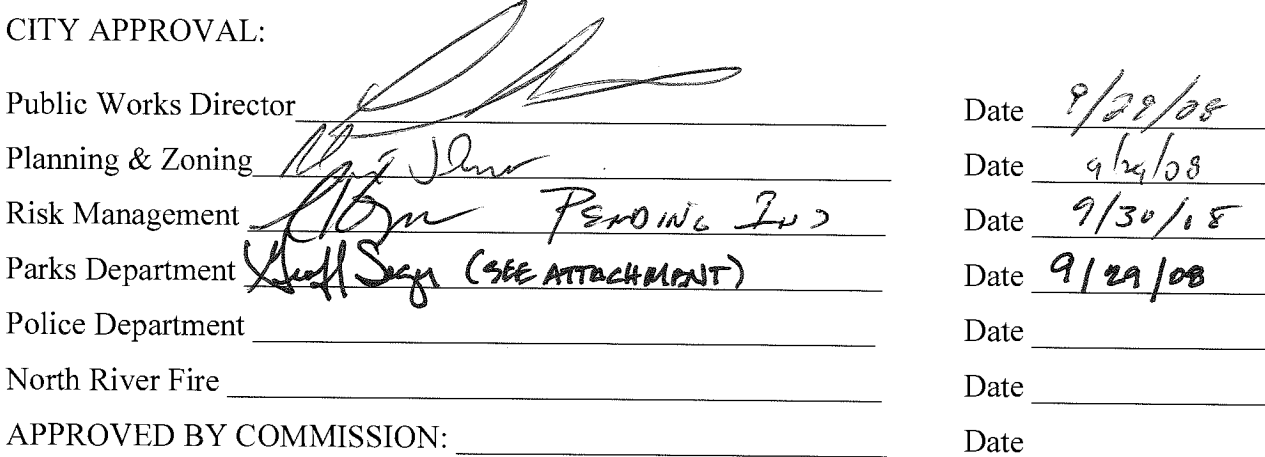 CITY APPROVAL:
Public Works Director Date 9/29/08
Planning & Zoning Date 9/29/08
Risk Management PENDING INS Date 9/30/08
Parks Department Geoff (SEE ATTACHMENT) Date 9/29/08
Police Department Date
North River Fire Date
APPROVED BY COMMISSION: Date